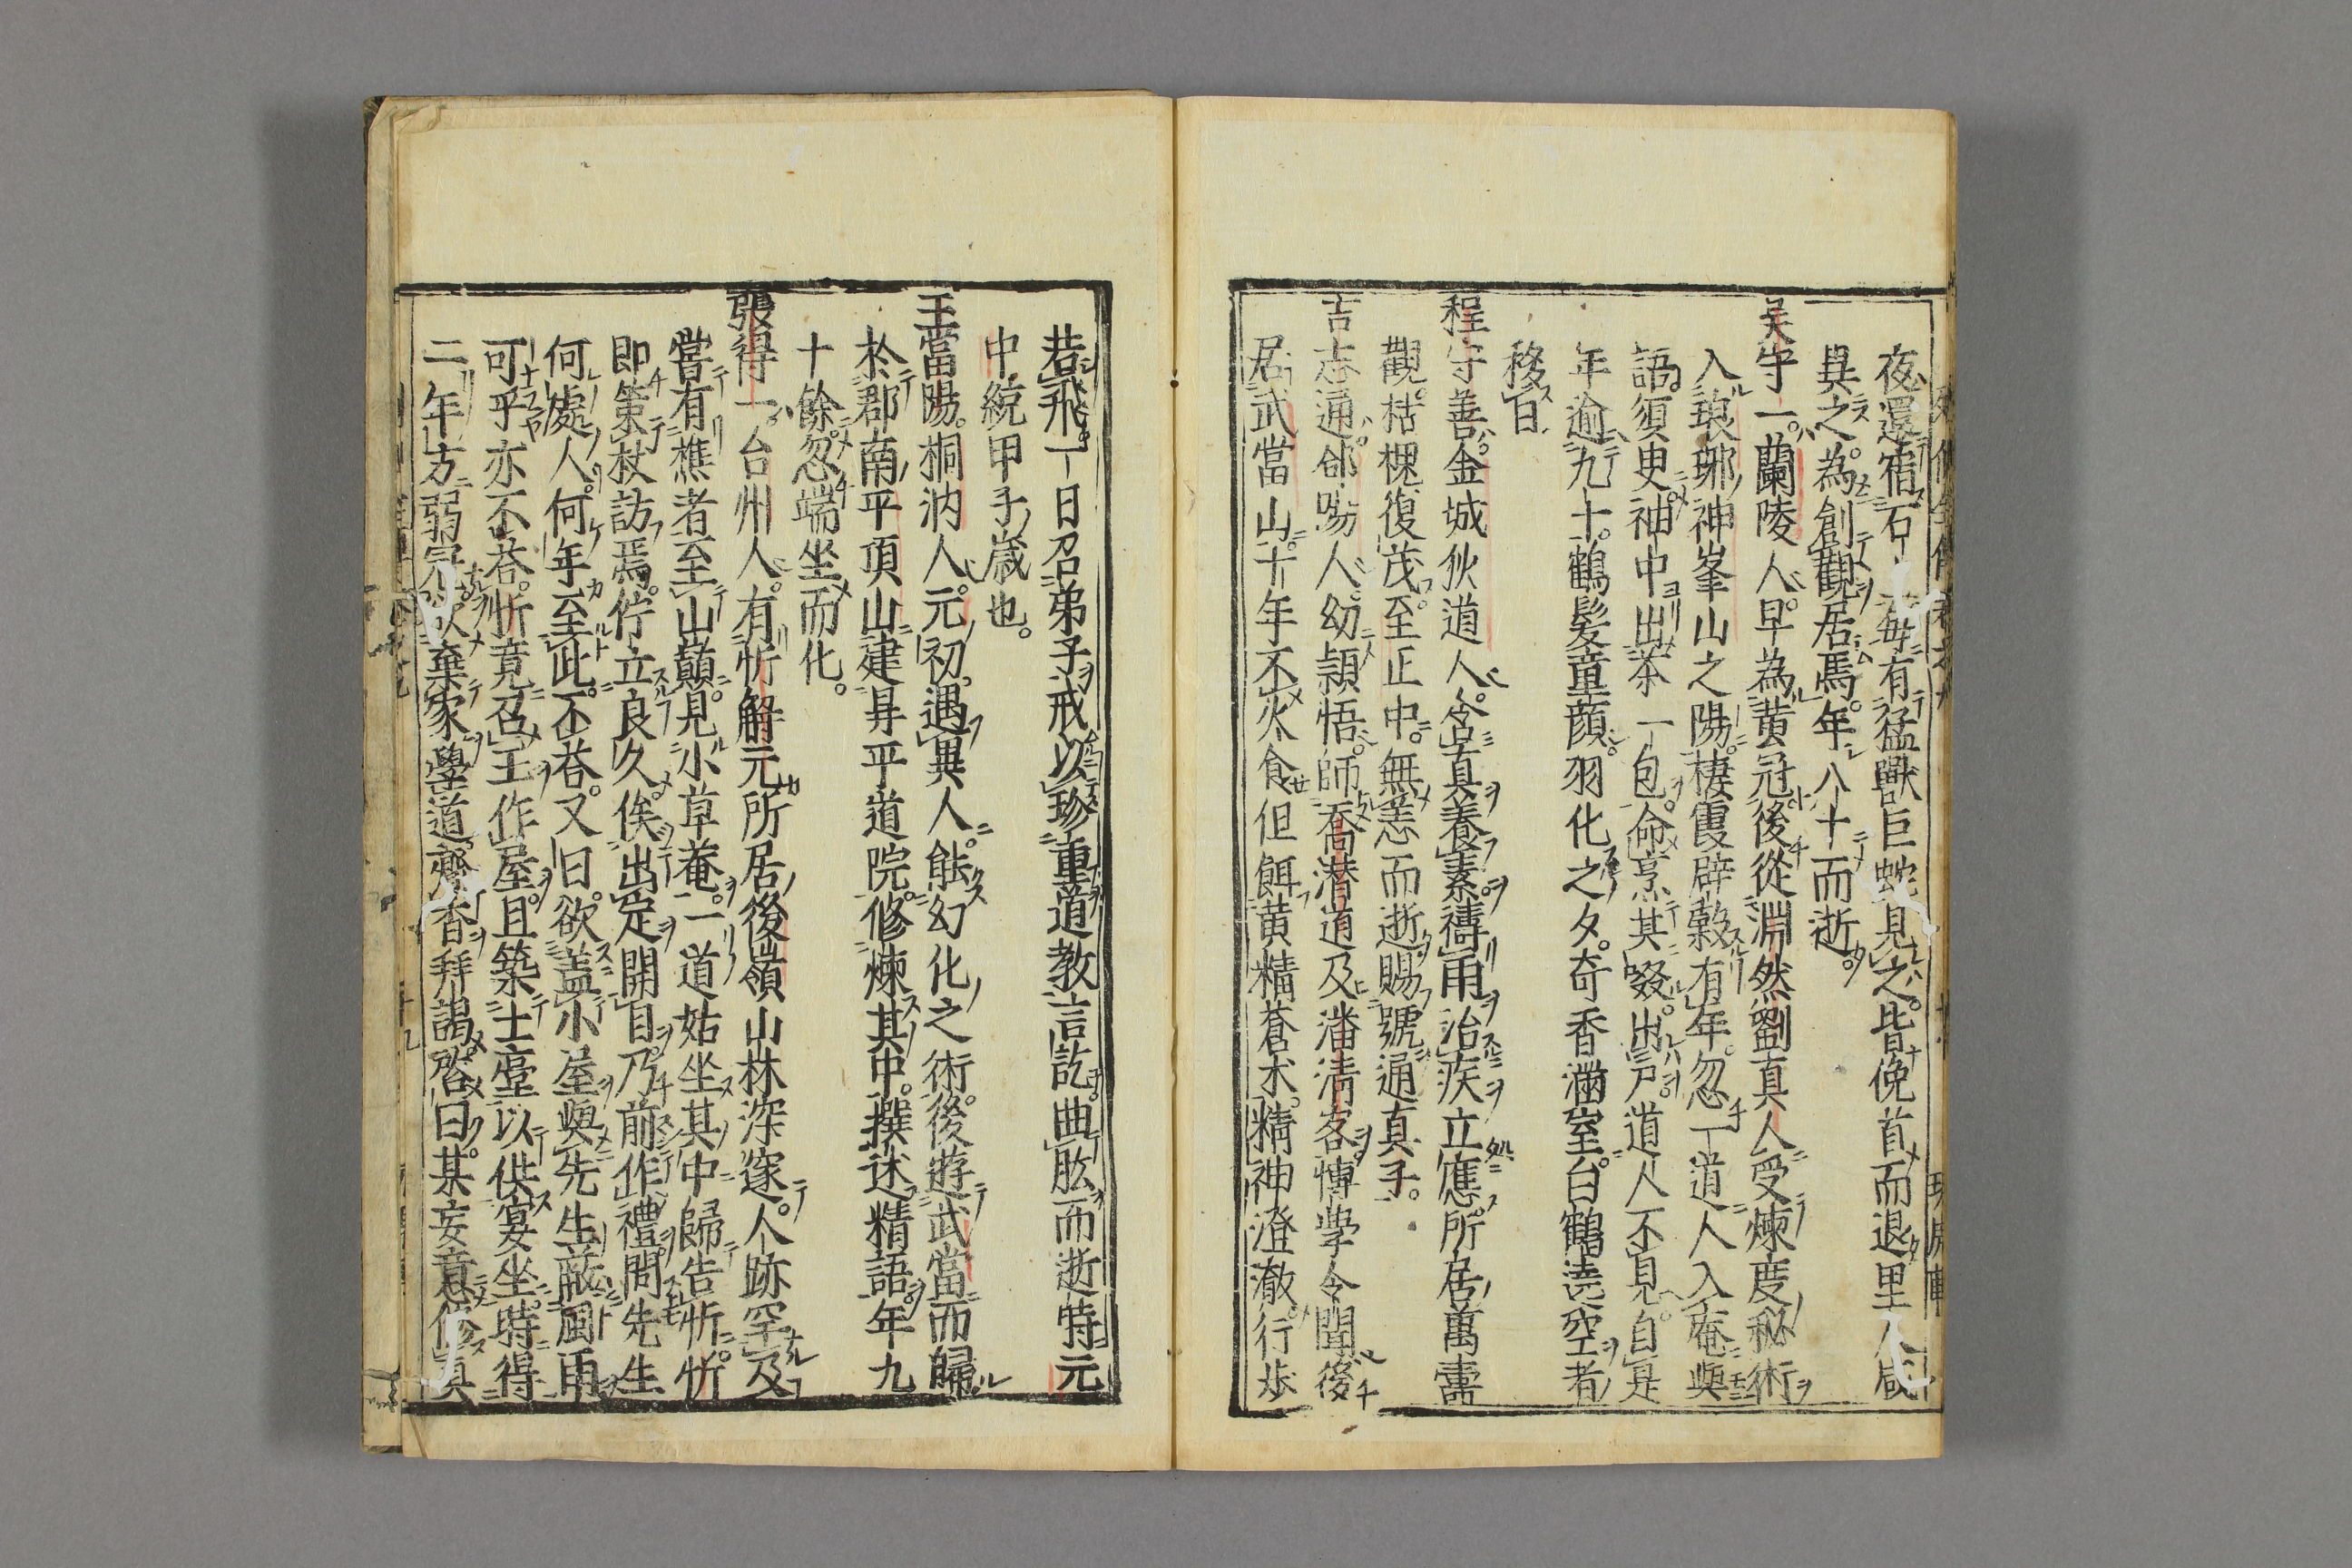 夜還宿石上。毎有猛獸巨蛇見之。皆俛首而退里人咸
異之。為創觀居焉。年八十而逝。
吴守一。蘭陵人。早為黄冠後從淵然劉真人受煉度秘術
入琅琊神峯山之陽。棲霞辟穀有年。忽一道人入菴與
語。須臾神中出茶一包。命烹其啜。出戸。道人不見。自是
年逾九十。鶴髪童顔。羽化之夕。奇香滿室。白鶴遶空者
移日
程守善。金城狄道人。含真養素。禱雨治疾立應。所居萬壽
觀。枯槐復茂。至正中。無恙而逝賜號通真子。
吉志通。郃陽人。幼頴悟。師喬潜道及潘清容。博學令聞後
居武當山。十年不火食但餌黄精蒼术。精神澄澈。行歩
若飛。一日召弟子戒以珍重道教言訖。曲肱而逝時元
中統甲子歳也。
王當陽。桐汭人。元初。遇異人。能幻化之術。後遊武當而歸
於郡南平頂山建昇平道院。修煉其中。撰述精語。年九
十餘。忽端坐而化。
張得一。台州人。有忻解元所居後嶺山林深邃。人跡罕及
嘗有樵者至山巓。見小草菴。一道姑坐其中歸告忻。忻
即策杖訪焉。佇立良久。俟出定開目。乃前作禮問先生
何處人。何年至此。不荅。又曰。欲盖小屋與先生蔽風雨
可乎亦不荅。忻竟召王作屋。且築土臺以供宴坐。時得
二年方弱冠。欲棄家學道。齎香拜謁。啓曰。某妄意修真